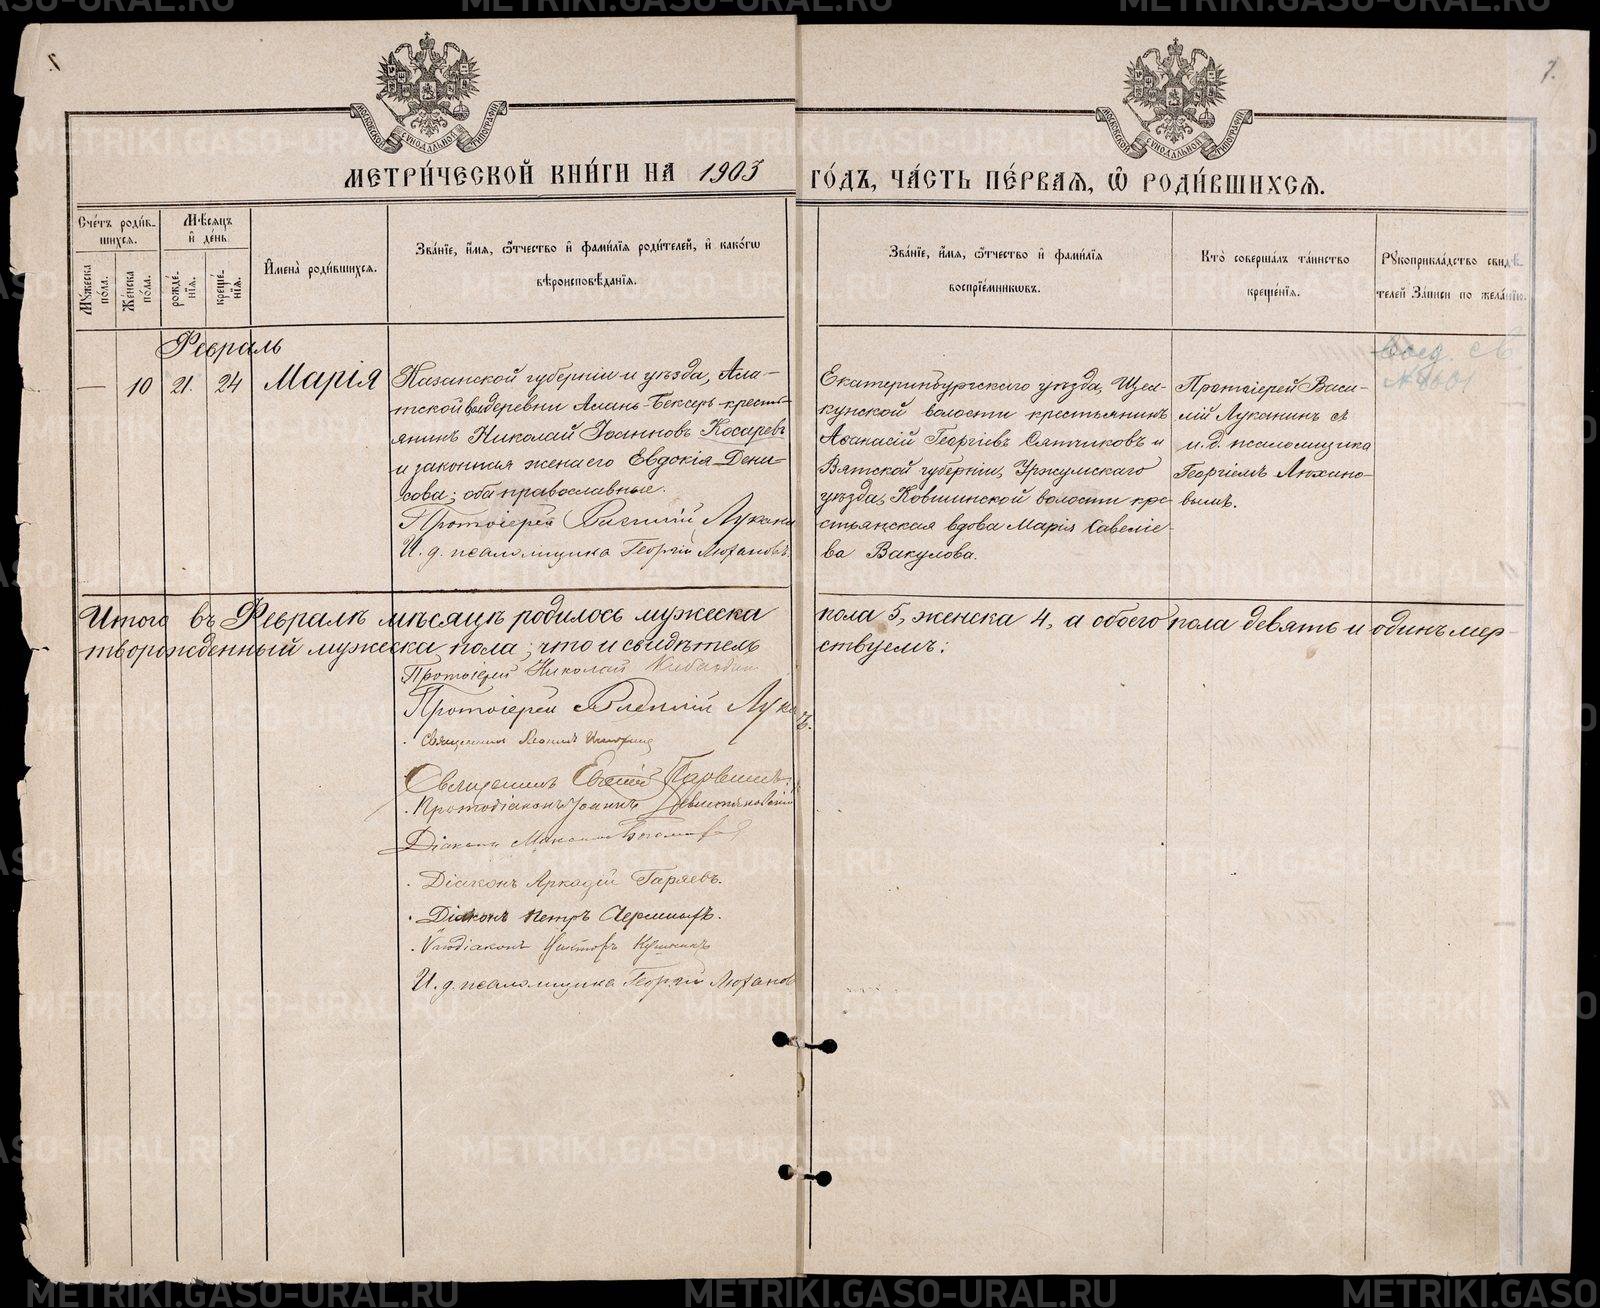 МЕТРИ́ЧЕСКОЙ КНИ́ГИ НА 1903 ГО́ДЪ, ЧА́СТЬ ПЕ́РВАЯ, Ѽ РОДИ́ВШИХСЯ.
МОСКОВСКОЙ СѴНОДАЛЬНОЙ ТИПОГРАФІИ
МОСКОВСКОЙ СѴНОДАЛЬНОЙ ТИПОГРАФІИ
Сче́тъ роди́вшихся.
Му́жеска пола.
Же́нска по́ла.
Мѣ́сяцъ и҆ де́нь
рожде́нїя.
креще́нїя.
И҆мена̀ роди́вшихся.
Зва́нїе, и҆́мя, ѻ҆́тчество и҆ фами́лїя роди́телей, и҆ како́гѡ
вѣроисповѣ́данїя.
Зва́нїе, и҆́мя, ѻ҆́тчество и҆ фами́лїя
воспрїе́мникѡвъ.
Кто̀ соверша́лъ та́инство
креще́нїя.
Рꙋкоприкла́дство свидѣ́-
телей за́писи по жела́нїю.
Февраль
— 10 21. 24 Марія
Казанской губерніи и уѣзда, Ала-
тской вол. деревни Алань-Бексерь крестья-
янинъ Николай Іоанновъ Косаревъ
и законная жена его Евдокія Дени-
сова; оба православные.
Протоіерей Василій Лукан
И. д. псаломщика Георгій Люхановъ.
Екатеринбургскаго уѣзда, Щел-
кунской волости крестьянинъ
Аѳанасій Георгіевъ Сятчиковъ и
Вятской губерніи, Уржумскаго
уѣзда, Ковшинской волости кре-
стьянская вдова Марія Савеліе-
ва Вакулова.
Протоіерей Васи-
лій Луканинъ съ
и. д. псаломщика
Георгіемъ Люхано-
вымъ.
Итого въ Февралѣ мѣсяцѣ родилось мужеска пола 5, женска 4, а обоего пола девять и одинъ мер-
творожденный мужеска пола; что и свидѣтель ствуемъ:
Протоіерей Николай
Протоіерей Василій Лука
Священникъ
Священникъ Евгеній
Протодіаконъ Іоаннъ
Діаконъ
Діаконъ Аркадій Гаряевъ.
Діаконъ Петръ
Иподіаконъ
И. д. псаломщика Георгій Люханов